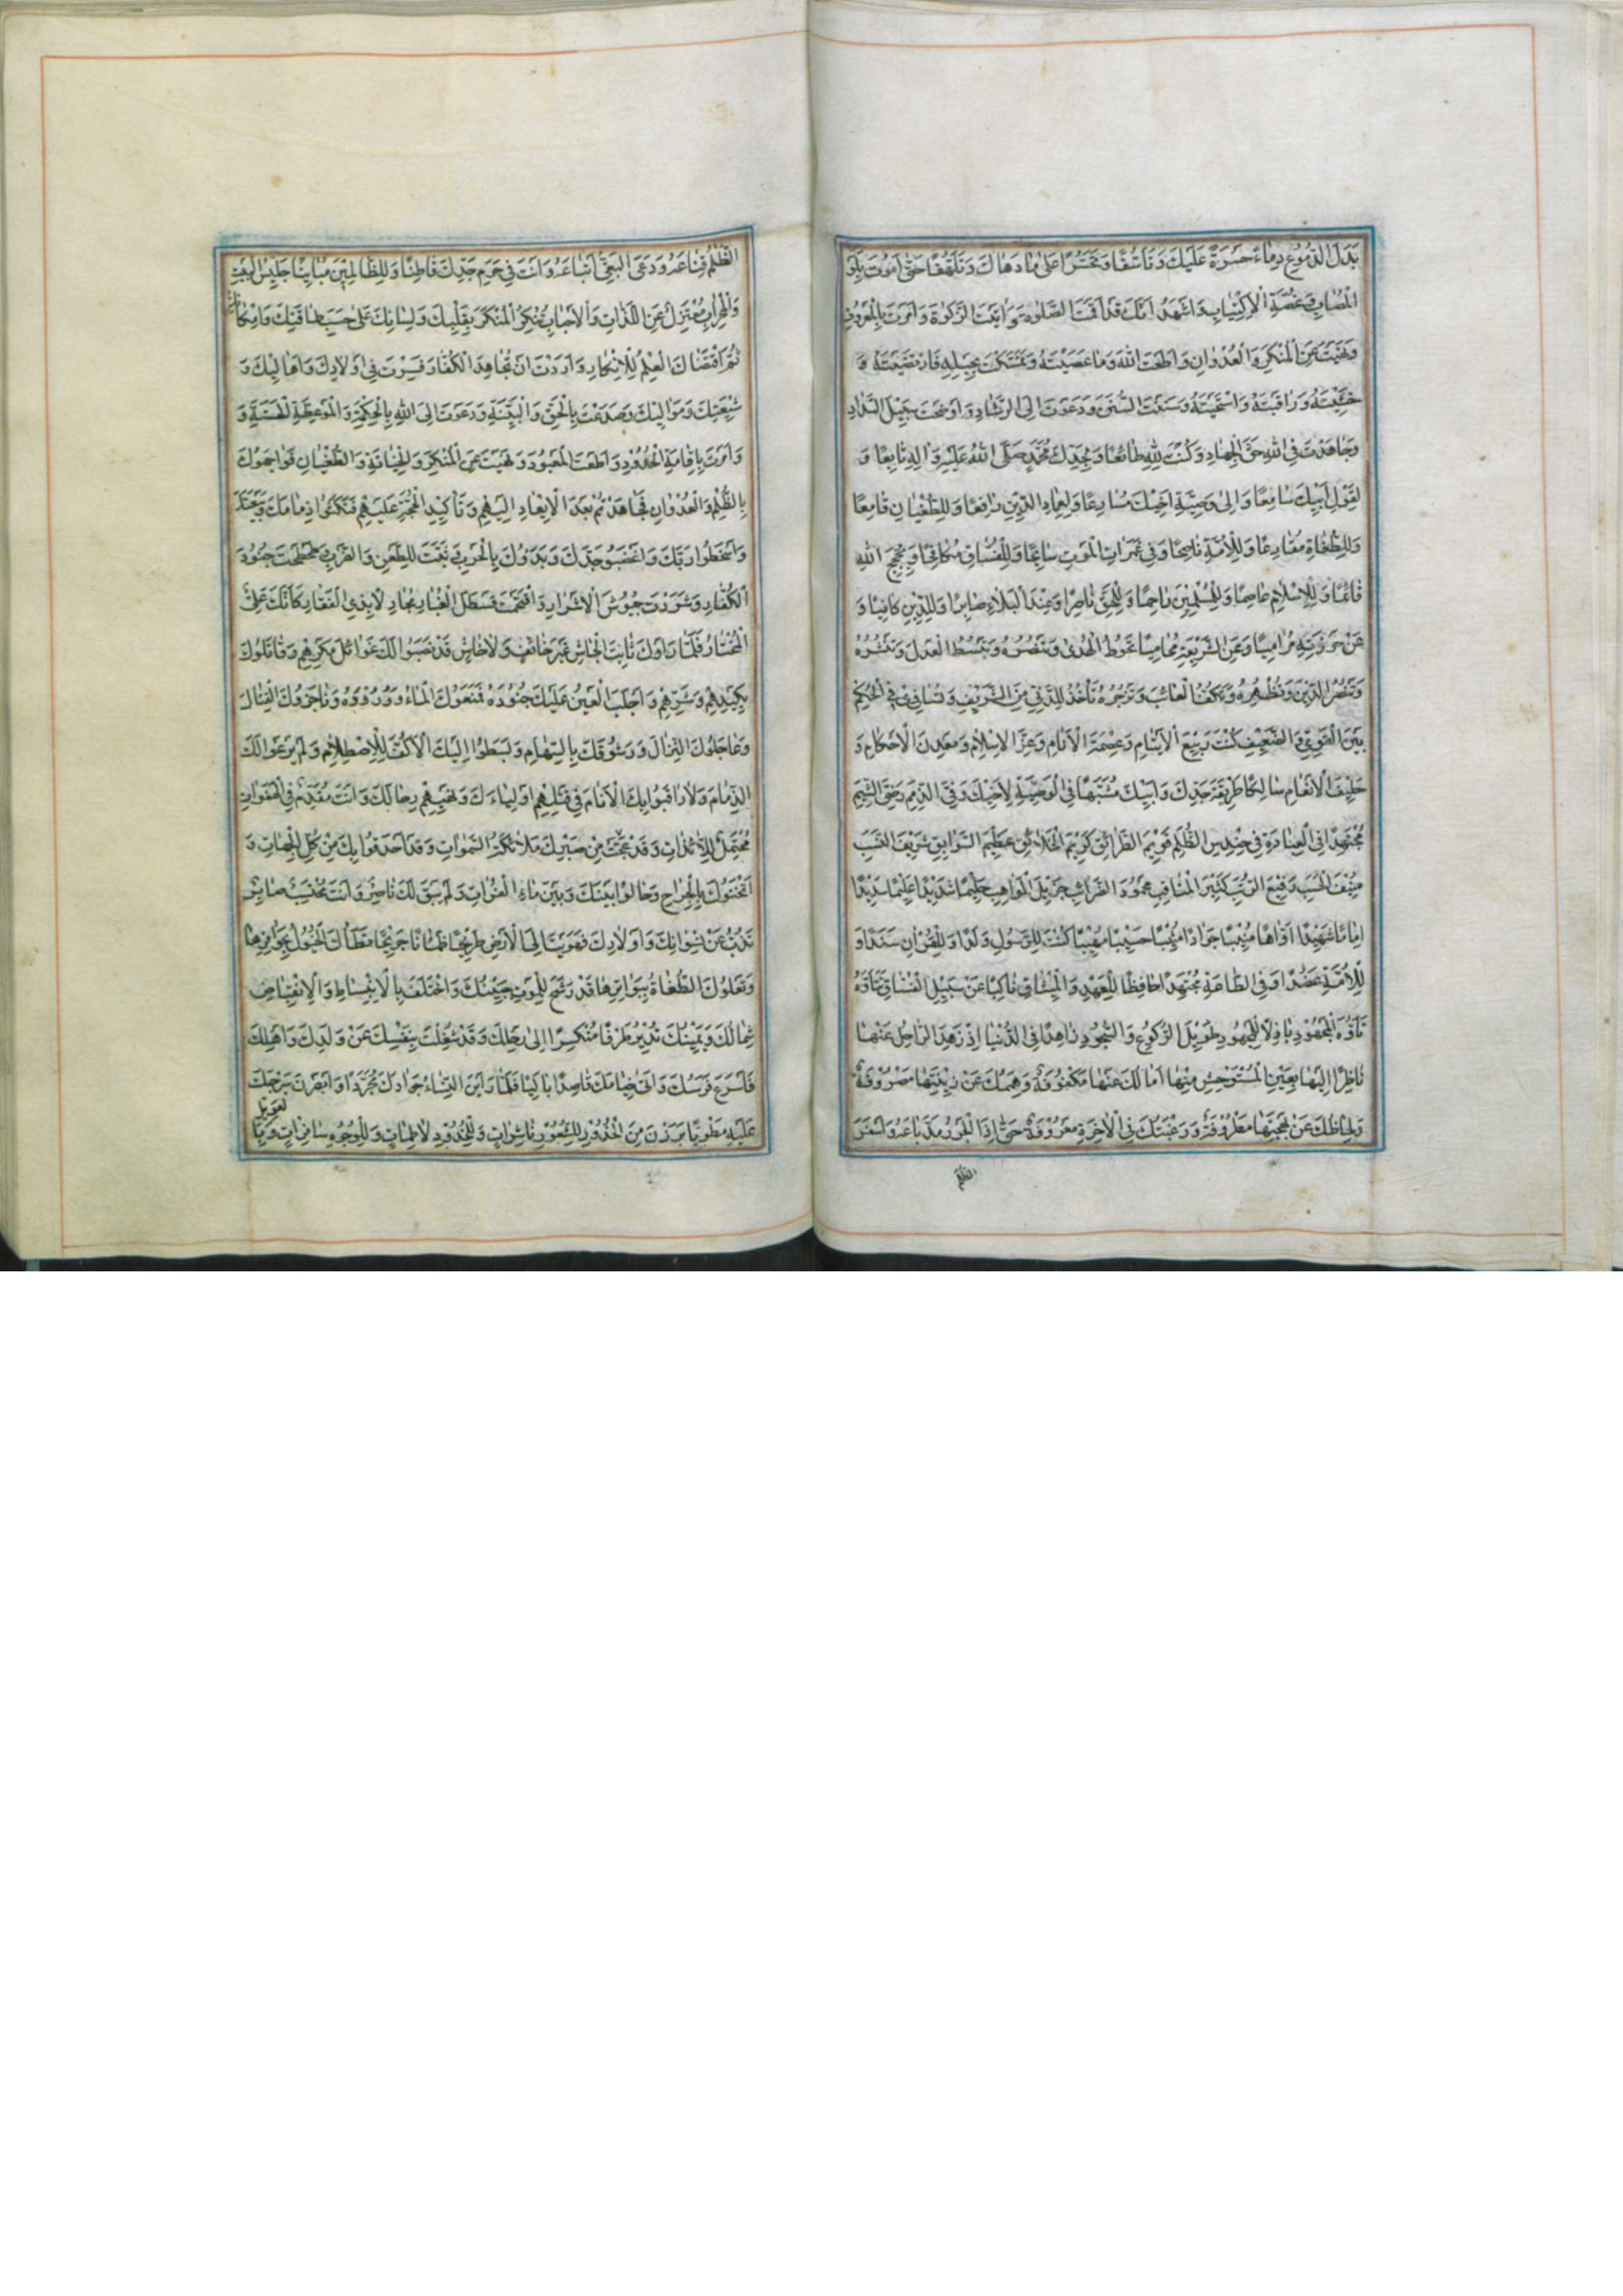 بَدَلَ الدُّمُوعِ دِمَاءً حَسْرَةً عَلَيْكَ وَتَأَسُّفًا وَتَحَسُّرًا عَلَى مَا دَهَاكَ وَتَلَهُّفًا حَتَّى أَمُوتَ بِلَوْعَةِ
الْمُصَابِ وَغُصَّةِ الْإِكْتِيَابِ وَأَشْهَدُ أَنَّكَ قَدْ أَقَمْتَ الصَّلَوةَ وَآتَيْتَ الزَّكَوةَ وَأَمَرْتَ بِالْمَعْرُوفِ
وَنَهَيْتَ عَنِ الْمُنْكَرِ وَالْعُدْوَانِ وَأَطَعْتَ اللهَ وَمَا عَصَيْتَهُ وَتَمَسَّكْتَ بِحَبْلِهِ فَارْتَضَيْتَهُ وَ
خَشِيتَهُ وَرَاقَبْتَهُ وَاسْتَحْيَيْتَهُ وَسَنَنْتَ السُّنَنَ وَدَعَوْتَ إِلَى الرَّشَادِ وَأَوْضَحْتَ سَبِيلَ السَّدَادِ
وَجَاهَدْتَ فِي اللهِ حَقَّ الْجِهَادِ وَكُنْتَ لِلّهِ طَائِعًا وَلِجَدِّكَ مُحَمَّدٍ صَلَّى اللهُ عَلَيْهِ وَآلِهِ تَابِعًا وَ
لِقَوْلِ أَبِيكَ سَامِعًا وَإِلَى وَصِيَّةِ أَخِيكَ مُسَارِعًا وَلِعِمَادِ الدِّينِ رَافِعًا وَلِلطُّغْيَانِ قَامِعًا
وَلِلطُّغَاةِ مُقَارِعًا وَلِلْأُمَّةِ نَاصِحًا وَفِي غَمَرَاتِ الْمَوْتِ سَابِحًا وَلِلْفُسَّاقِ مُكَافِحًا وَبِحُجَجِ اللهِ
قَائِمًا وَلِلْإِسْلَامِ عَاصِمًا وَلِلْمُسْلِمِينَ رَاحِمًا وَلِلْحَقِّ نَاصِرًا وَعِنْدَ الْبَلَاءِ صَابِرًا وَلِلدِّينِ كَالِيًا وَ
عَنْ حَوْزَتِهِ مُرَامِيًا وَعَنِ الشَّرِيعَةِ مُحَامِيًا تَحُوطُ الْهُدَى وَتَنْصُرُهُ وَتَبْسُطُ الْعَدْلَ وَتَنْشُرُهُ
وَتَنْصُرُ الدِّينَ وَتُظْهِرُهُ وَتَكُفُّ الْعَابِثَ وَتَزْجُرُهُ تَأْخُذُ لِلدَّنِيِّ مِنَ الشَّرِيفِ وَتُسَاوِي فِي الْحُكْمِ
بَيْنَ الْقَوِيِّ وَالضَّعِيفِ كُنْتَ رَبِيعَ الْأَيْتَامِ وَعِصْمَةَ الْأَنَامِ وَعِزَّ الْإِسْلَامِ وَمَعْدِنَ الْأَحْكَامِ وَ
حَلِيفَ الْأَنْعَامِ سَالِكًا طَرِيقَةَ جَدِّكَ وَأَبِيكَ مُشَبَّهًا فِي الْوَصِيَّةِ لِأَخِيكَ وَفِيَّ الذِّمَمِ رَضِيَّ الشِّيَمِ
مُجْتَهِدًا فِي الْعِبَادَةِ فِي حِنْدِسِ الظُّلَمِ قَوِيمَ الطَّرَائِقِ كَرِيمَ الْخَلَائِقِ عَظِيمَ السَّوَابِقِ شَرِيفَ النَّسَبِ
مُنِيفَ الْحَسَبِ رَفِيعَ الرُّتَبِ كَثِيرَ الْمَنَاقِبِ مَحْمُودَ الضَّرَائِبِ جَزِيلَ الْمَوَاهِبِ حَلِيمًا شَدِيدًا عَلِيمًا
إِمَامًا شَهِيدًا أَوَّاهًا مُنِيبًا جَوَادًا حَسِيبًا مَهِيبًا كُنْتَ لِلرَّسُولِ وَلَدًا وَلِلْقُرْآنِ سَنَدًا وَ
لِلْأُمَّةِ عَضُدًا وَفِي الطَّاعَةِ مُجْتَهِدًا حَافِظًا لِلْعَهْدِ وَالْمِيثَاقِ نَاكِبًا عَنْ سَبِيلِ الْفُسَّاقِ تَتَأَوَّهُ
تَأَوُّهَ الْمَجْهُودِ بَاذِلًا لِلْمَجْهُودِ طَوِيلَ الرُّكُوعِ وَالسُّجُودِ زَاهِدًا فِي الدُّنْيَا إِذْ زَهِدَ الرَّاحِلُ عَنْهَا
نَاظِرًا إِلَيْهَا بِعَيْنِ الْمُسْتَوْحِشِ مِنْهَا آمَالُكَ عَنْهَا مَكْفُوفَةٌ وَهِمَّتُكَ عَنْ زِينَتِهَا مَصْرُوفَةٌ
وَلِحَاظُكَ عَنْ بَهْجَتِهَا مَطْرُوفَةٌ وَرَغْبَتُكَ فِي الْآخِرَةِ مَعْرُوفَةٌ حَتَّى إِذَا الْجَوْرُ مَدَّ بَاعَهُ وَأَسْفَرَ
الظُّلْمُ
الظُّلْمُ قِنَاعَهُ وَدَعَى الْغَيُّ أَتْبَاعَهُ وَأَنْتَ فِي حَرَمِ جَدِّكَ قَاطِنًا وَلِلظَّالِمِينَ مُبَايِنًا جَلِيسُ الْبَيْتِ
وَالْمِحْرَابِ مُعْتَزِلٌ عَنِ اللَّذَّاتِ وَالْأَحْبَابِ تُنْكِرُ الْمُنْكَرَ بِقَلْبِكَ وَلِسَانِكَ عَلَى حَسَبِ طَاقَتِكَ وَإِمْكَانِكَ
ثُمَّ اقْتَضَاكَ الْعِلْمُ لِلْإِنْكَارِ وَأَرَدْتَ أَنْ تُجَاهِدَ الْكُفَّارَ فَسِرْتَ فِي أَوْلَادِكَ وَأَهَالِيكَ وَ
شِيعَتِكَ وَمَوَالِيكَ وَصَدَعْتَ بِالْحَقِّ وَالْبَيِّنَةِ وَدَعَوْتَ إِلَى اللهِ بِالْحِكْمَةِ وَالْمَوْعِظَةِ الْحَسَنَةِ وَ
وَأَمَرْتَ بِإِقَامَةِ الْحُدُودِ وَأَطَعْتَ الْمَعْبُودَ وَنَهَيْتَ عَنِ الْمُنْكَرِ وَالْخِيَانَةِ وَالطُّغْيَانِ فَوَاجَهُوكَ
بِالظُّلْمِ وَالْعُدْوَانِ فَجَاهَدْتَهُمْ بَعْدَ الْإِيعَادِ إِلَيْهِمْ وَتَأْكِيدِ الْحُجَّةِ عَلَيْهِمْ فَنَكَثُوا ذِمَامَكَ وَبَيْعَتَكَ
وَأَسْخَطُوا رَبَّكَ وَأَغْضَبُوا جَدَّكَ وَبَدَؤُكَ بِالْحَرْبِ فَثَبَتَّ لِلطَّعْنِ وَالضَّرْبِ وَطَحَطَحْتَ جُنُودَ
الْكُفَّارِ وَشَرَّدْتَ جُيُوشَ الْأَشْرَارِ وَاقْتَحَمْتَ قَسْطَلَ الْغُبَارِ مُجَالِدًا بِذِي الْفَقَارِ كَأَنَّكَ عَلِيٌّ
الْمُخْتَارُ فَلَمَّا رَأَوْكَ ثَابِتَ الْجَاشِ غَيْرَ خَائِفٍ وَلَا خَاشٍ قَدْ نَصَبُوا لَكَ غَوَائِلَ مَكْرِهِمْ وَقَاتَلُوكَ
بِكَيْدِهِمْ وَشَرِّهِمْ وَأَجْلَبَ اللَّعِينُ عَلَيْكَ جُنُودَهُ فَمَنَعُوكَ الْمَاءَ وَوُرُودَهُ وَنَاجَزُوكَ الْقِتَالَ
وَعَاجَلُوكَ النِّزَالَ وَرَشَقُوكَ بِالسِّهَامِ وَبَسَطُوا إِلَيْكَ الْأَكُفَّ لِلْإِصْطِلَامِ وَلَمْ يَرْعَوْا لَكَ
الذِّمَامَ وَلَا رَاقَبُوا بِكَ الْأَنَامَ فِي قَتْلِهِمْ أَوْلِيَاءَكَ وَنَهْبِهِمْ رِحَالَكَ وَأَنْتَ مُقَدَّمٌ فِي الْهَبَوَاتِ
مُحْتَمِلٌ لِلْأَذِيَّاتِ وَقَدْ عَجِبَتْ مِنْ صَبْرِكَ مَلَائِكَةُ السَّمَوَاتِ وَقَدْ أَحْدَقُوا بِكَ مِنْ كُلِّ الْجِهَاتِ وَ
أَثْخَنُوكَ بِالْجِرَاحِ وَحَالُوا بَيْنَكَ وَبَيْنَ مَاءِ الْفُرَاتِ وَلَمْ يَبْقَ لَكَ نَاصِرٌ وَأَنْتَ مُحْتَسِبٌ صَابِرٌ
تَذُبُّ عَنْ نِسْوَانِكَ وَأَوْلَادِكَ فَهَوَيْتَ إِلَى الْأَرْضِ طَرِيحًا ظَمْآنًا جَرِيحًا تَطَأُكَ الْخُيُولُ بِحَوَافِرِهَا
وَتَعْلُوكَ الطُّغَاةُ بِبَوَاتِرِهَا قَدْ رَشَحَ لِلْمَوْتِ جَبِينُكَ وَاخْتَلَفَ بِالْإِنْبِسَاطِ وَالْإِنْقِبَاضِ
شِمَالُكَ وَيَمِينُكَ تُدِيرُ طَرْفًا مُنْكَسِرًا إِلَى رَحْلِكَ وَقَدْ شُغِلْتَ بِنَفْسِكَ عَنْ وَلَدِكَ وَأَهْلِكَ
فَأَسْرَعَ فَرَسُكَ وَإِلَى خِيَامِكَ قَاصِدًا بَاكِيًا فَلَمَّا رَأَيْنَ النِّسَاءُ جَوَادَكَ مُجَرَّدًا وَأَبْصَرْنَ سَرْجَكَ
عَلَيْهِ مَطْوِيًّا بَرَزْنَ مِنَ الْخُدُورِ لِلشُّعُورِ نَاشِرَاتٍ وَلِلْخُدُودِ لَاطِمَاتٍ وَلِلْوُجُوهِ سَافِرَاتٍ وَبِالْعَوِيلِ